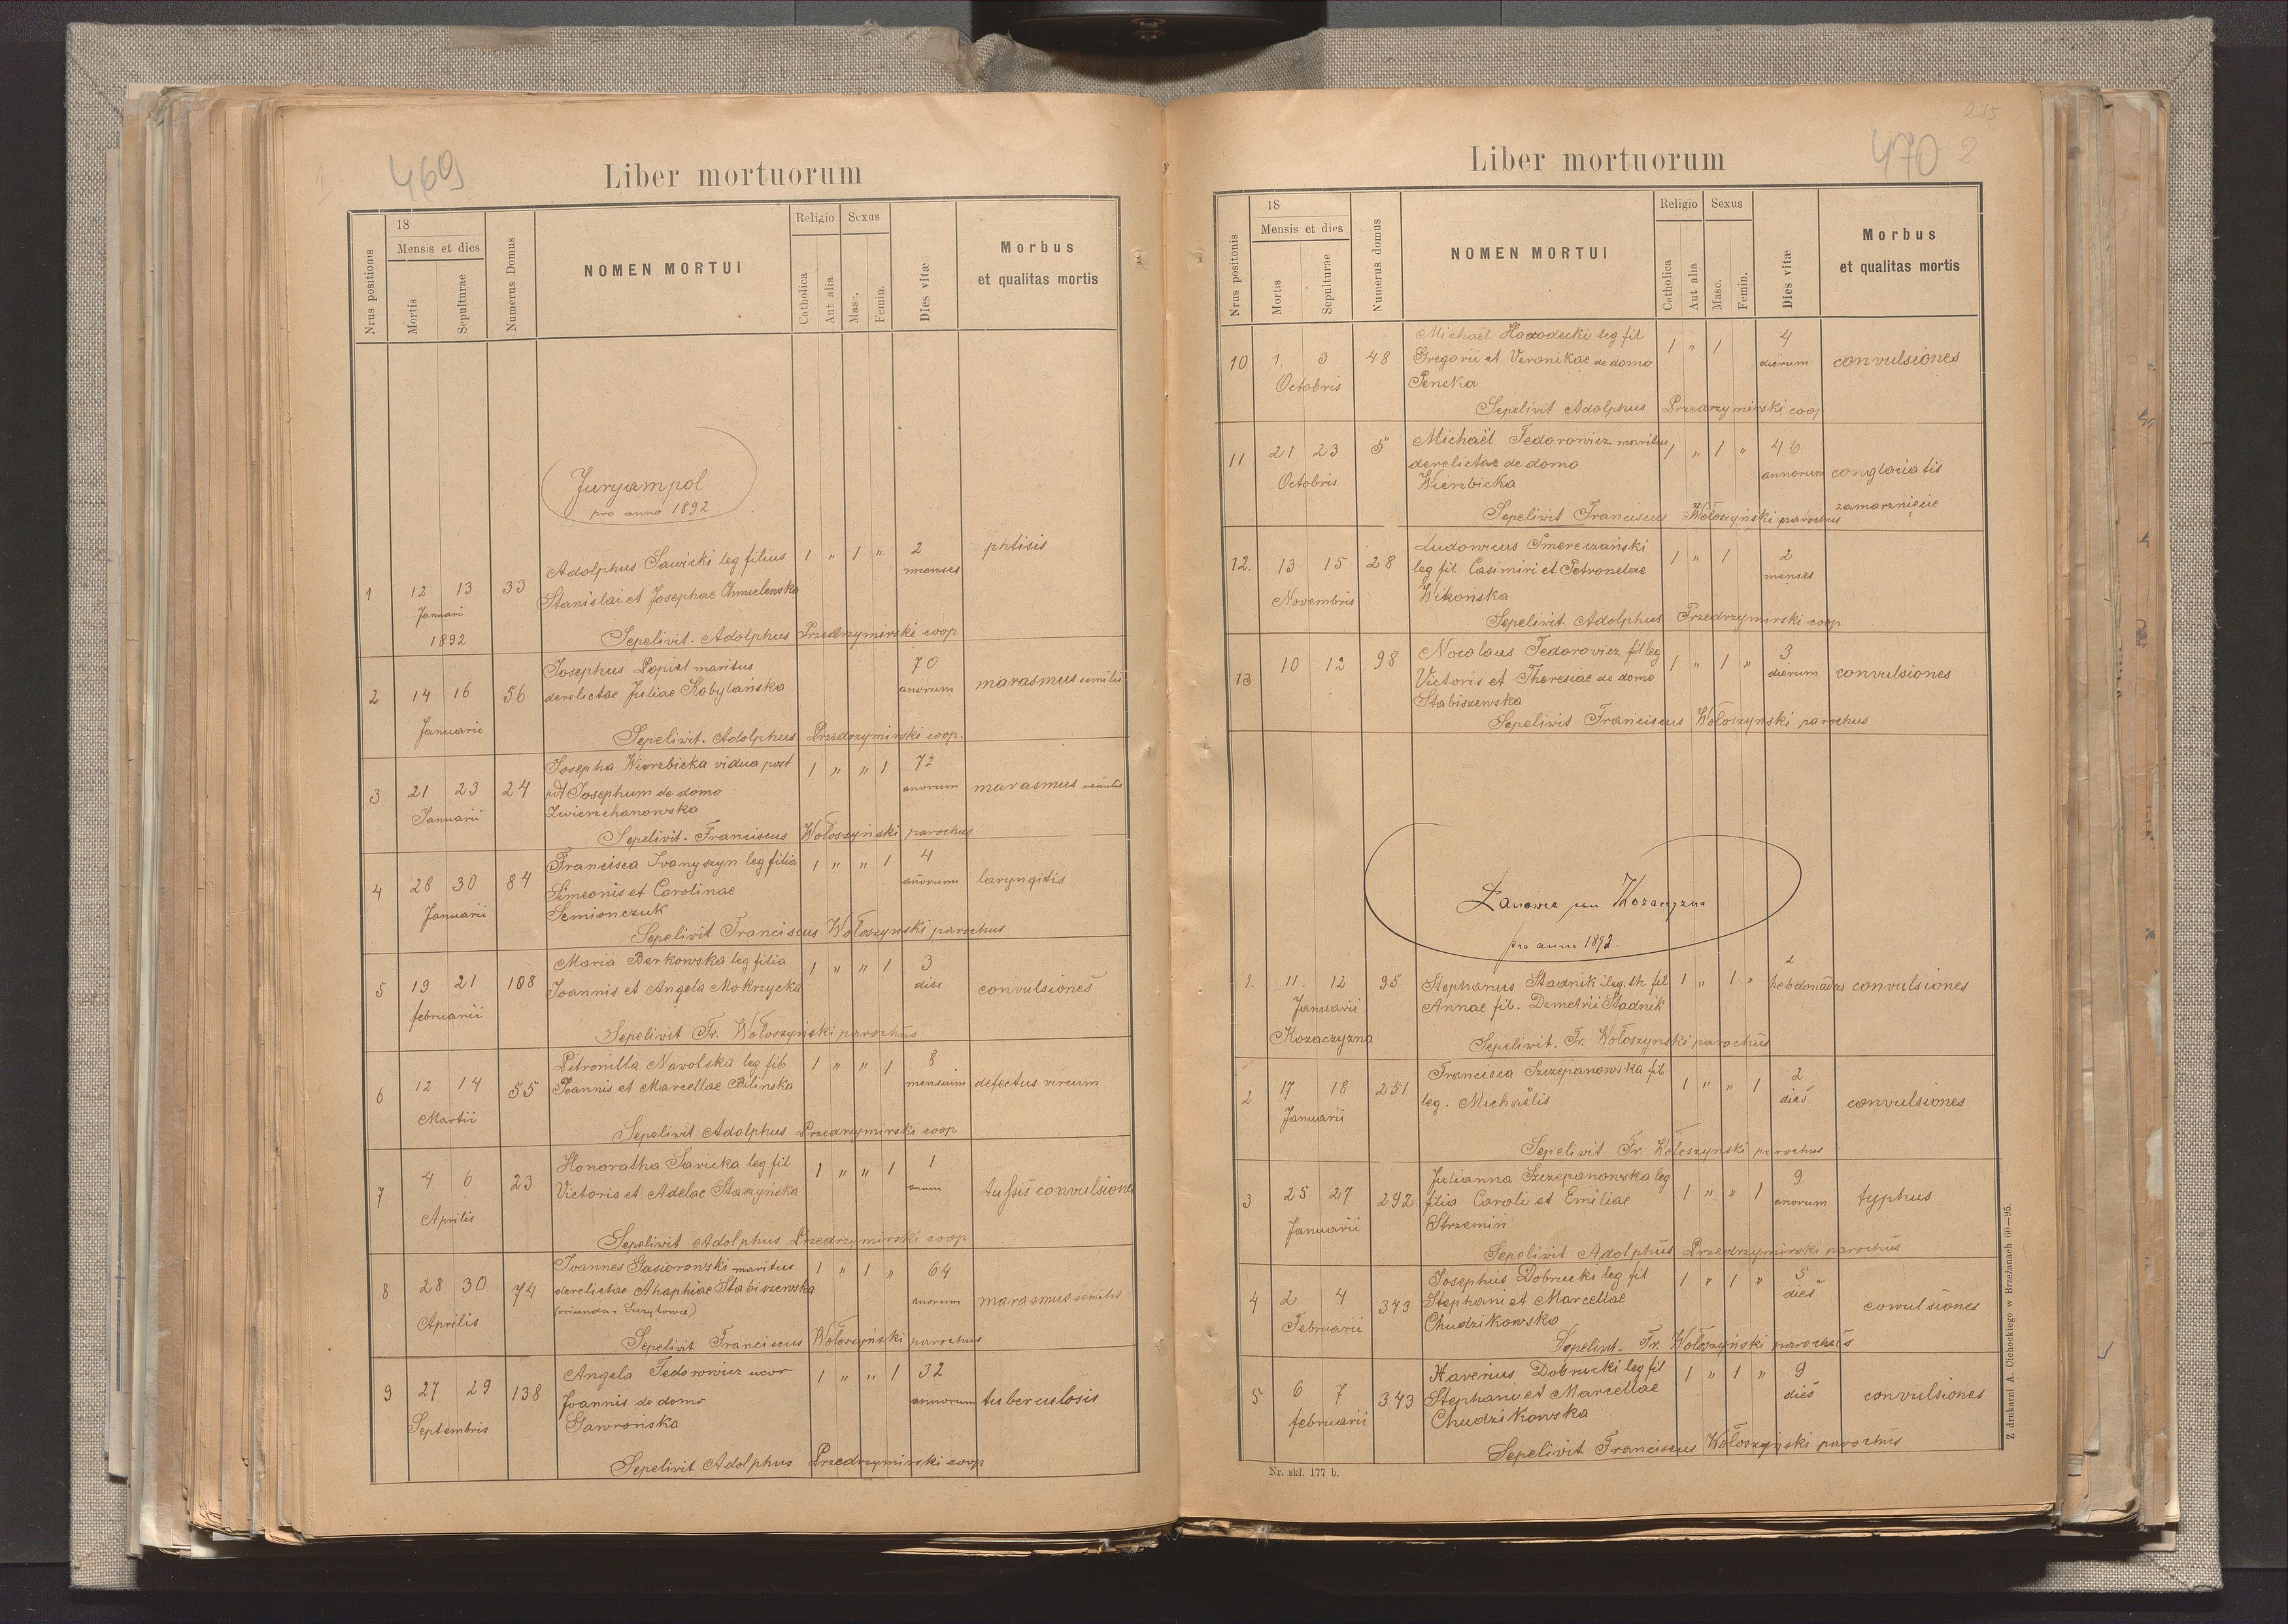 469
Liber mortuorum
Nrus positionis
18
Mensis et dies
Mortis
Sepulturae
Numerus Domus
NOMEN MORTUI
Religio
Catholica
Aut alia
Sexus
Masc.
Femin.
Dies vitæ
Morbus
et qualitas mortis
Juryampol
pro anno 1892
1 12 13 33 Adolphus Sawicki leg filius 1 " 1 " 2 phtisis
Januari Stanislai et Josephae Chmielewska menses
1892 Sepelivit. Adolphus Przedrzymirski coop
2 14 16 56 Josephus Popiel maritus 70
derelictae Juliae Kobylańska anorum marasmus senilis
Januarii Sepelivit. Adolphus Przedrzymirski coop.
3 21 23 24 Josepha Wierzbicka vidua post 1 " " 1 72
Josephum de domo anorum marasmus senilis
Januarii Zwierzchanowska
Sepelivit. Franciscus Wołoszyński parochus
4 28 30 84 Francisca Iwanyszyn leg filia 1 " " 1 4
Simeonis et Carolinae anorum laryngitis
Januarii Semionczuk
Sepelivit Franciscus Wołoszynski parochus
5 19 21 108 Maria Berkowska leg filia 1 " " 1 3
Joannis et Angela Mokrzycka dies convulsiones
februarii
Sepelivit Fr. Wołoszyński parochus
6 12 14 55 Petronilla Nawolska leg fil 1 " " 1 8
Joannis et Marcellae Bilinska mensium defectus virium
Martii
Sepelivit Adolphus Przedrzymirski coop
7 4 6 23 Honoratha Sawicka leg fil 1 " " 1 1
Victoris et Adelae Staszyńska anum tussis convulsiones
Aprilis
Sepelivit Adolphus Przedrzymirski coop
8 28 30 74 Joannes Gasiorowski maritus 1 " 1 " 64
derelictae Ahaphiae Stabiszewska anorum marasmus senilis
Aprilis
Sepelivit Franciscus Wołoszyński parochus
9 27 29 138 Angela Fedorowicz uxor 1 " " 1 32
Joannis de domo annorum tuberculosis
Septembris Gawrońska
Sepelivit Adolphus Przedrzymirski coop
235
470 2
Liber mortuorum
Nrus positonis
18
Mensis et dies
Mortis
Sepulturae
Numerus domus
NOMEN MORTUI
Religio
Catholica
Aut alia
Sexus
Masc.
Femin.
Dies vitæ
Morbus
et qualitas mortis
10 1. 3 48 Michaël Horodecki leg fil 1 " 1 4
Gregorii et Veronikae de domo dierum convulsiones
Octobris Pencka
Sepelivit Adolphus Przedrzymirski coop
11 21 23 5 Michaël Fedorowicz maritus 1 " 1 " 46
derelictae de domo annorum conglaciatis
Octobris Wierzbicka
zamarznięcie
Sepelivit Franciscus Wołoszyński parochus
12. 13 15 28 Ludovicus Smereczański 1 " 1 2
leg fil Casimiri et Petronelae menses
Novembris Wikońska
Sepelivit Adolphus Przedrzymirski coop
13 10 12 98 Nocolaus Fedorovicz fil leg 1 " 1 " 3
Victoris et Theresiae de domo dierum convulsiones
Stabiszewska
Sepelivit Franciscus Wołoszynski parochus
Łanowce Kozaczyzna
pro anno 1892.
1. 11. 12 95 Stephanus Stadnik ileg. th fil 1 " 1 " 2 hebdomadas convulsiones
Januarii Annae fil. Demetrii Stadnik
Kozaczyzna Sepelivit. Fr. Wołoszynski parochus
2 17 18 251 Francisca Szczepanowska fil 1 " " 1 2
leg. Michaëlis dies convulsiones
Januarii
Sepelivit Fr. Wołoszynski parochus
3 25 27 292 Julianna Szczepanowska leg 1 " " 1 9
filia Caroli et Emiliae anorum typhus
Januarii Strzemin
Sepelivit Adolphus Przedrzymirski parochus
4 2 4 343 Josephus Dobrucki leg fil 1 " 1 " 5
Stephani et Marcellae dies cowulsiones
Februarii Chudzikowska
Sepelivit. Fr. Wołoszyński parochus
5 6 7 343 Xaverius Dobrucki leg fil 1 " 1 " 9
Stephani et Marcellae dies convulsiones
februarii Chudzikowska
Sepelivit Franciscus Wołoszyński parochus
Nr. skł. 177 b.
Z drukarni A. Cichockiego w Brzeżanach 60—95.